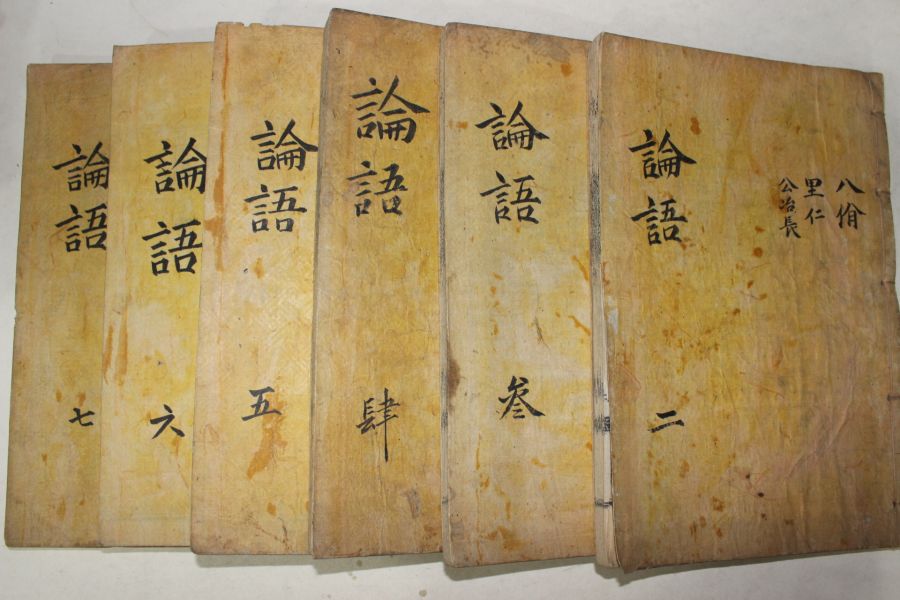 論語
二
八佾
里仁
公冶長
論語
叁
論語
肆
論語
五
論語
六
論語
七